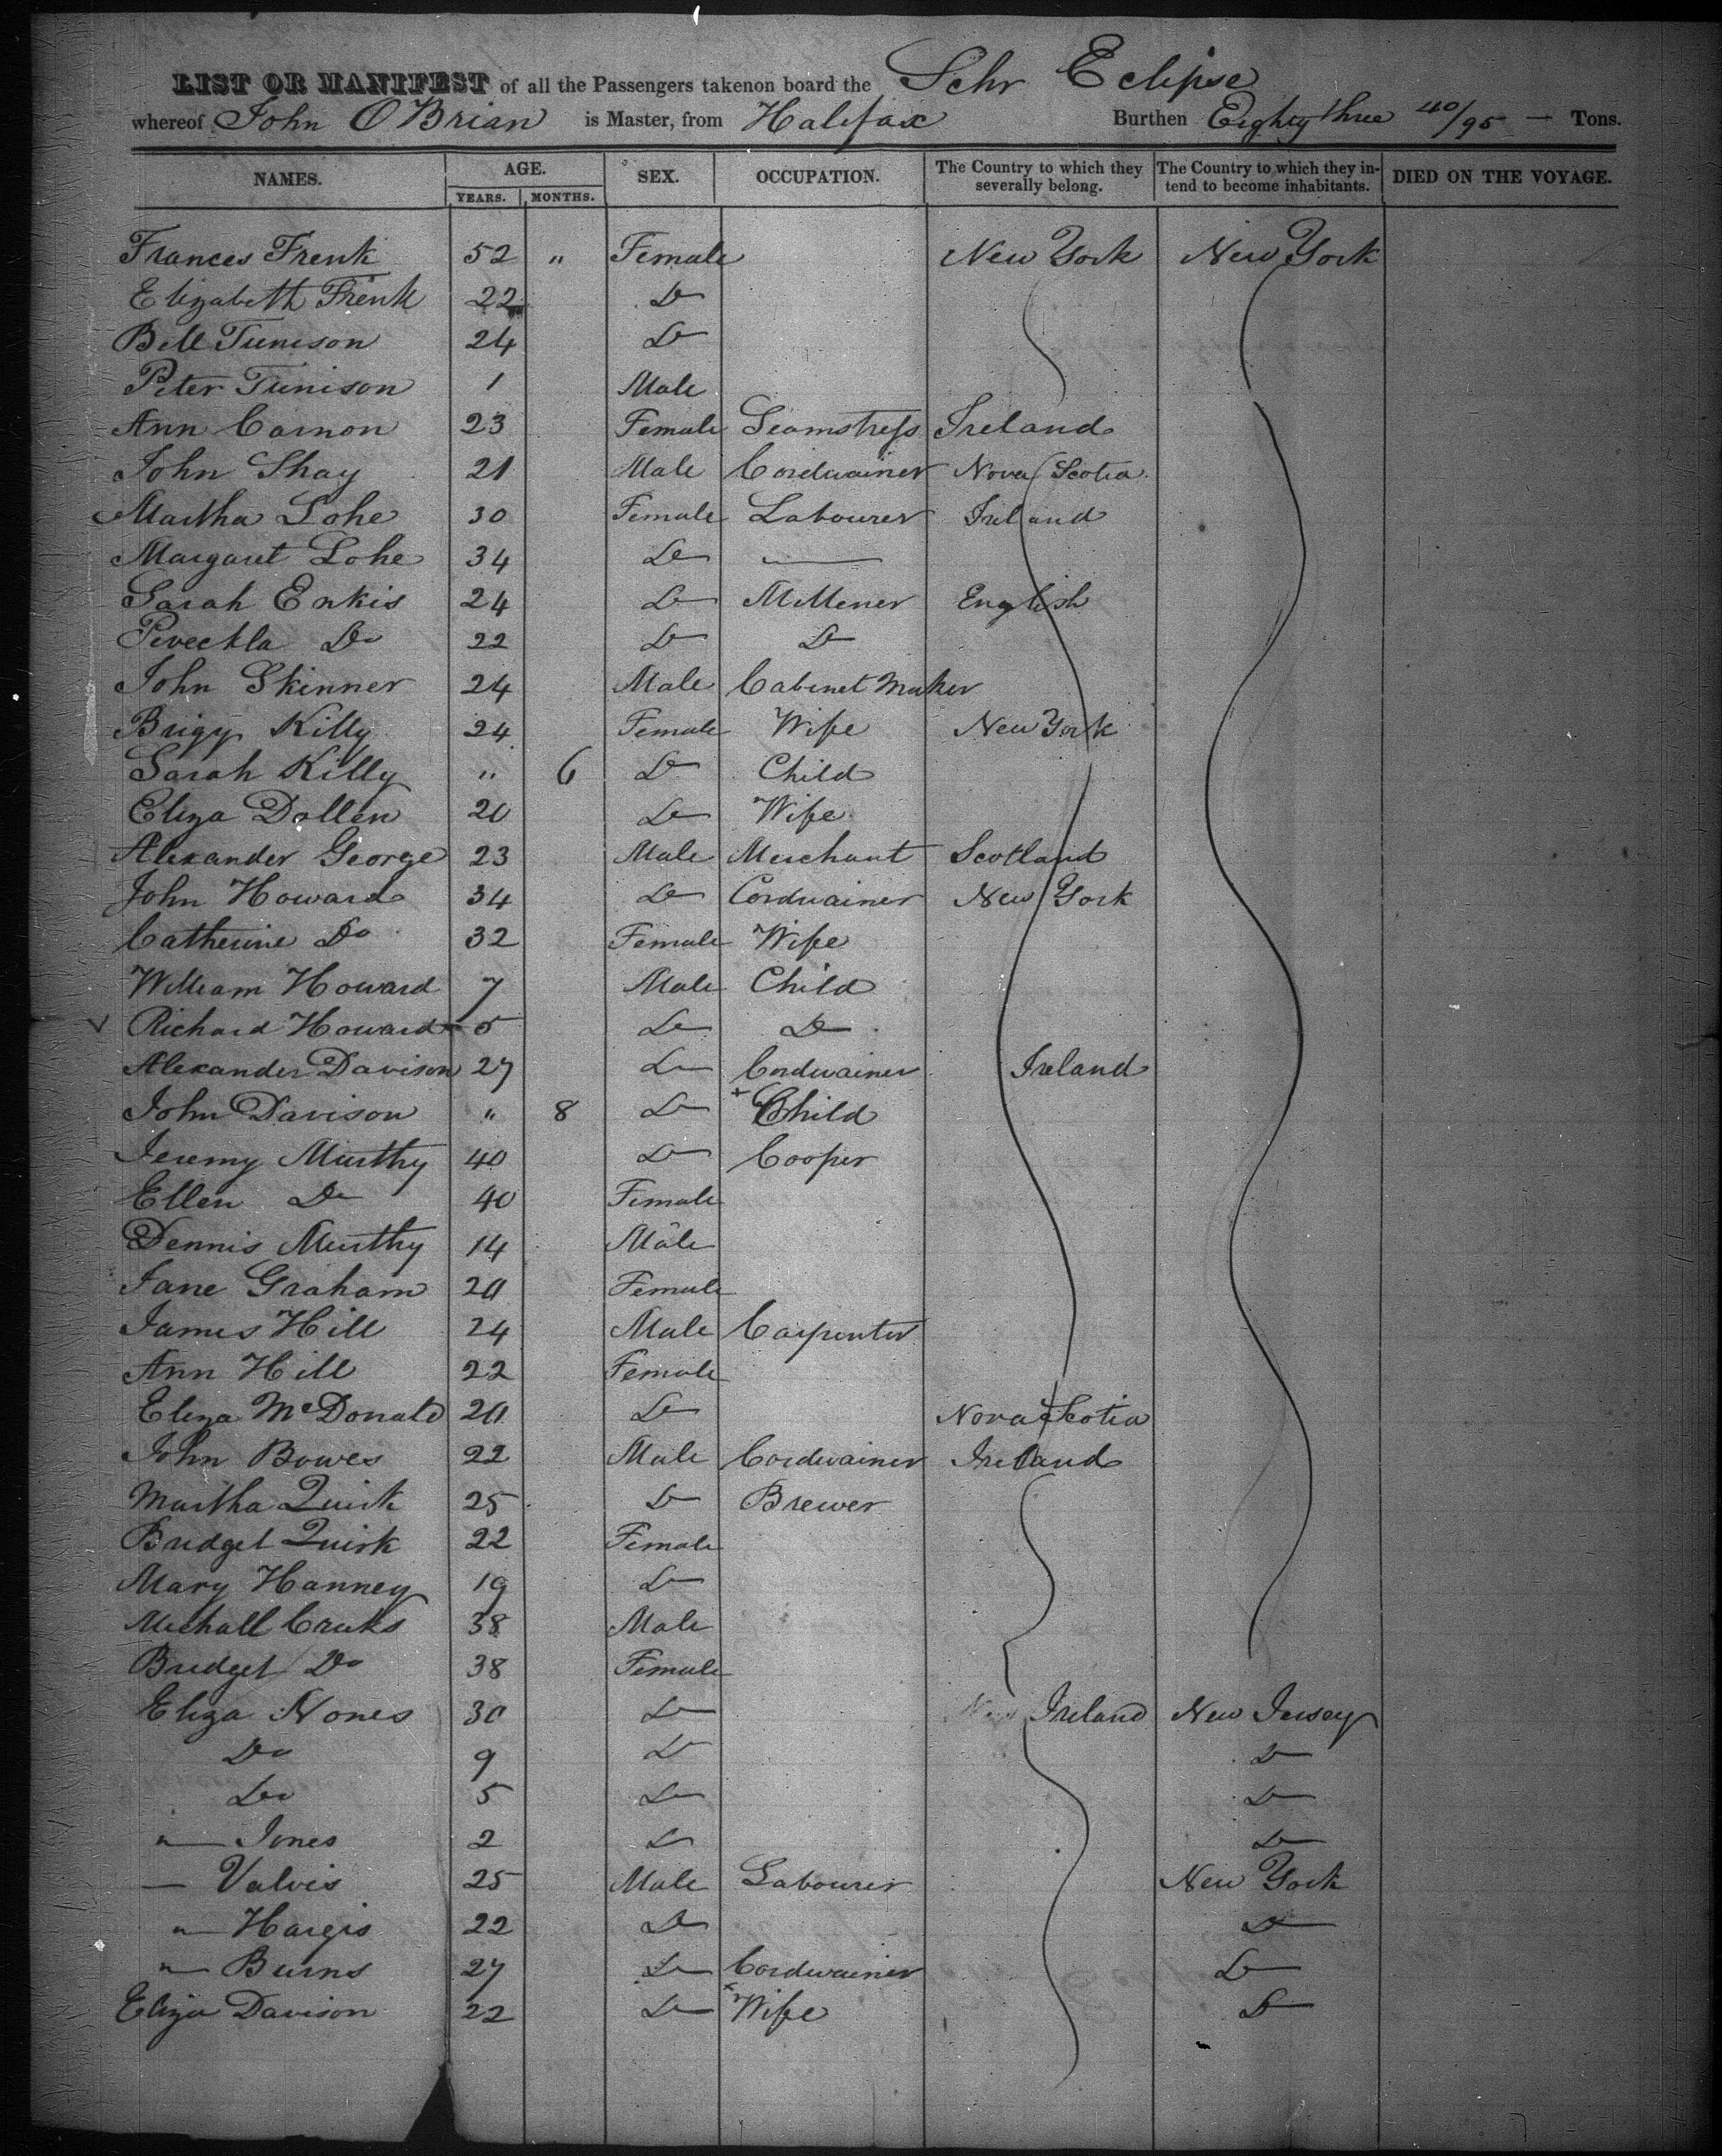 LIST OR MANIFEST of all the Passengers takenon board the Schr Eclipse
whereof John O'Brian is Master, from Halifax Burthen Eighty three 40/95 — Tons.
NAMES. AGE. YEARS. MONTHS. SEX. OCCUPATION. The Country to which they severally belong. The Country to which they intend to become inhabitants. DIED ON THE VOYAGE.
Frances Frenk 52 " Female New York New York
Elizabeth Frenk 22 Do
Bell Tunison 24 Do
Peter Tunison 1 Male
Ann Carnon 23 Female Seamstress Ireland
John Shay 21 Male Cordwainer Nova Scotia
Martha Lohe 30 Female Labourer Ireland
Margaret Lohe 34 Do —
Sarah Enkis 24 Do Millener English
Do 22 Do Do
John Skinner 24 Male Cabinet Maker
Brigy Killy 24 Female Wife New York
Sarah Killy " 6 Do Child
Eliza Dollen 20 Do Wife
Alexander George 23 Male Merchant Scotland
John Howard 34 Do Cordwainer New York
Catherine Do 32 Female Wife
William Howard 7 Male Child
Richard Howard 5 Do Do
Alexander Davison 27 Do Cordwainer Ireland
John Davison " 8 Do + Child
Jeremy Murthy 40 Do Cooper
Ellen Do 40 Female
Dennis Murthy 14 Male
Jane Graham 20 Female
James Hill 24 Male Carpenter
Ann Hill 22 Female
Eliza McDonald 20 Do Nova Scotia
John Bowes 22 Male Cordwainer Ireland
Martha Quirk 25 Do Brewer
Bridget Quirk 22 Female
Mary Hanney 19 Do
Michall Cruks 38 Male
Bridget Do 38 Female
Eliza Nones 30 Do Ireland New Jersey
Do 9 Do Do
Do 5 Do Do
" — Jones 2 Do Do
— Valvis 25 Male Labourer New York
" — Hargis 22 Do Do
" — Burns 27 Do Cordwainer Do
Eliza Davison 22 Do + Wife Do